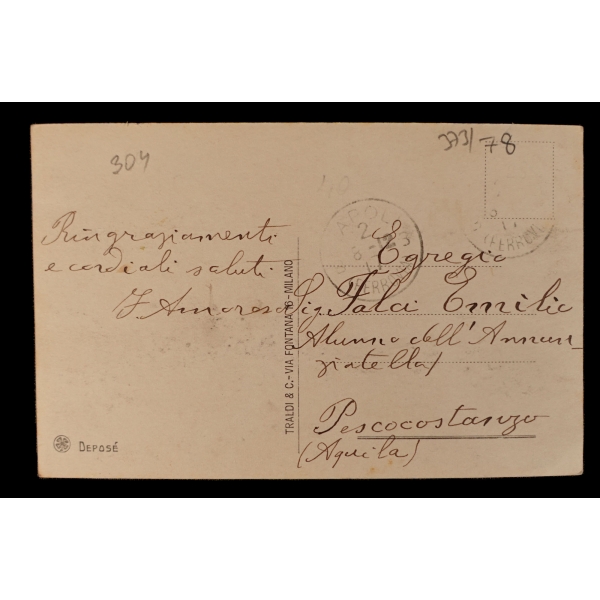 304
373/78
Ringraziamenti
e cordiali saluti
Egregio
Sig. Falci Emilio
Alunno dell'Annun
ziatella
Pescocostanzo
(Aquila)
TRALDI & C.-VIA FONTANA 16-MILANO
DEPOSÉ
NAPOLI
(FERROVIA)